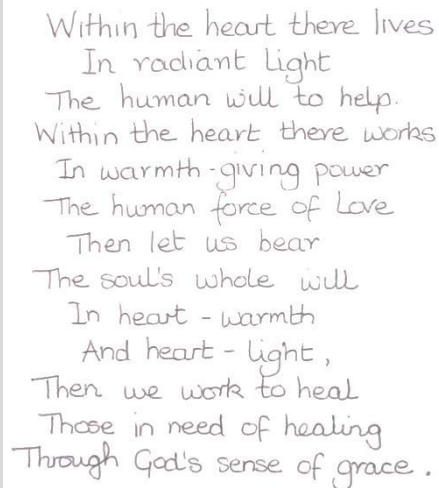 Within the heart there lives
In radiant Light
The human will to help.
Within the heart there works
In warmth-giving power
The human force of Love
Then let us bear
The soul's whole will
In heart - warmth
And heart - light,
Then we work to heal
Those in need of healing
Through God's sense of grace.